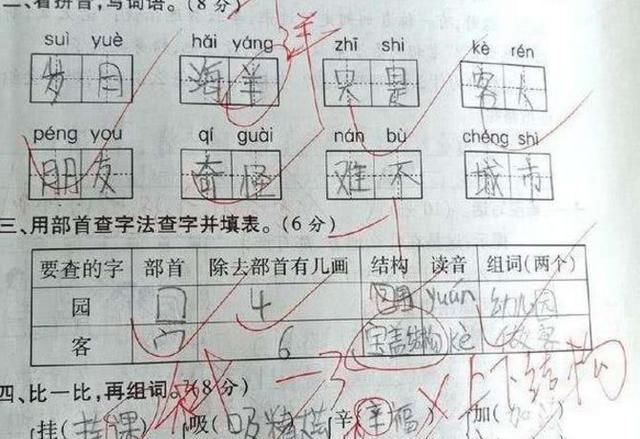 二、看拼音，写词语。(8分)
suì yuè hǎi yáng zhī shi kè rén
岁月 海羊 是 客人
羊
péng you qí guài nán bù chéng shì
朋友 奇怪 难不 城市
三、用部首查字法查字并填表。(6分)
要查的字 部首 除去部首有几画 结构 读音 组词(两个)
园 囗 4 yuán 幼儿园
客 宀 6 宝盖结构 kè 做客
上下结构
四、比一比，再组词。(8分)
挂( 吸( 辛(幸福) 加(